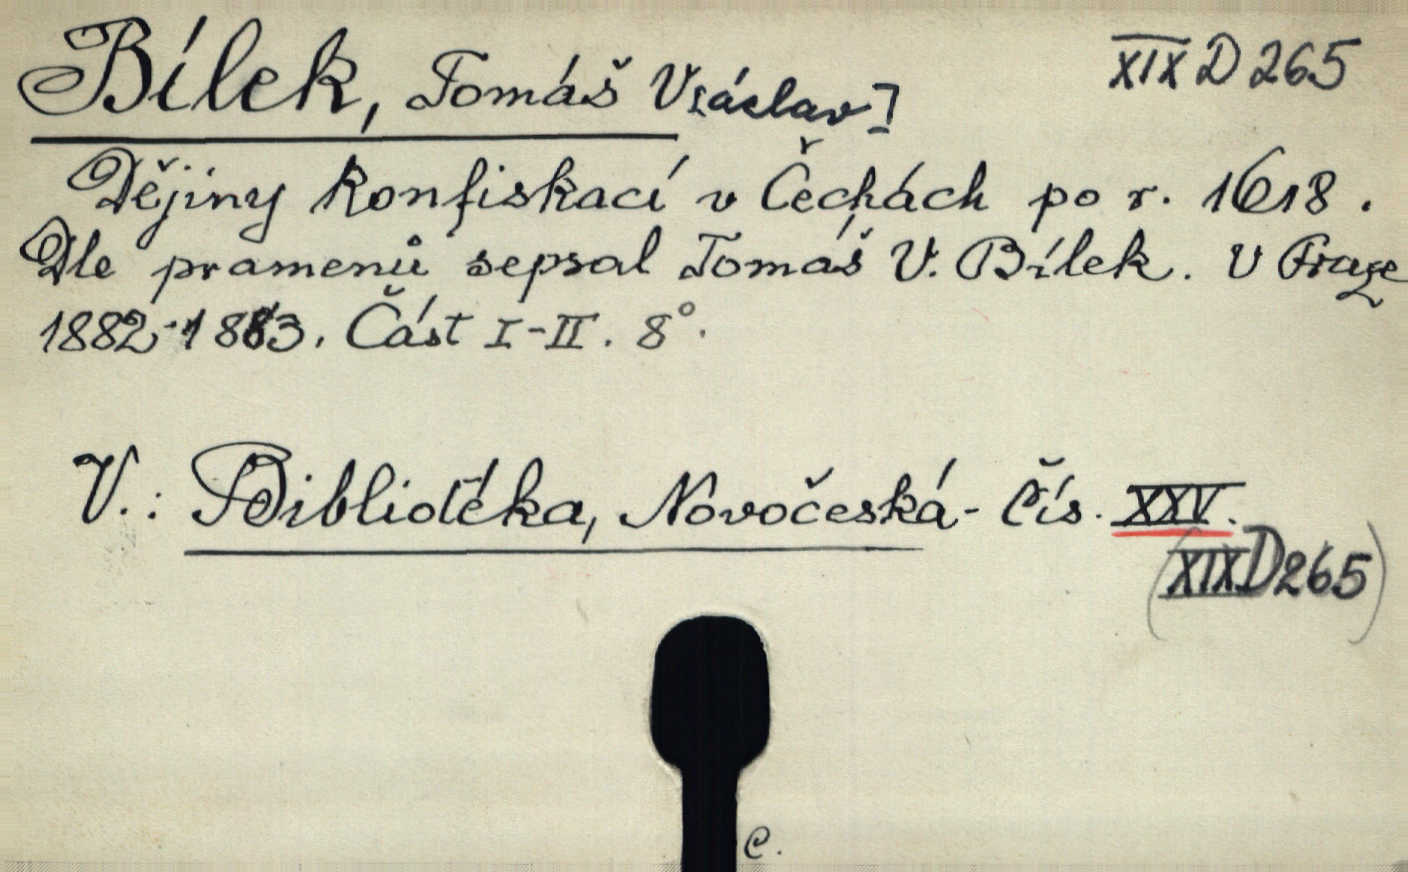 Bílek, Tomáš V[áclav]
XIX D 265
Dějiny konfiskací v Čechách po r. 1618.
Dle pramenů sepsal Tomáš V. Bílek. V Praze
1882-1883. Část I-II. 8°.
V.: Bibliotéka, Novočeská - Čís. XXV.
(XIX D 265)
C.